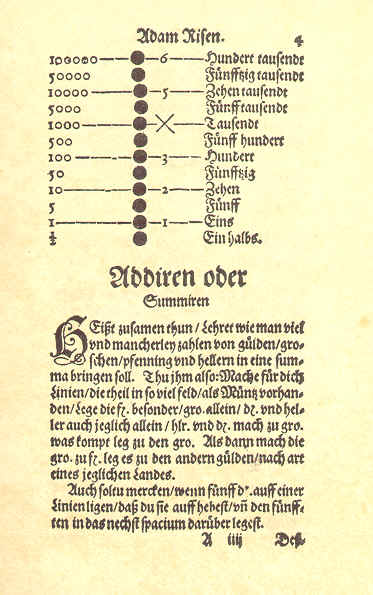 Adam Risen. 4
100000 6 Hundert tausendt
50000 Fünfftzig tausendt
10000 5 Zehen tausendt
5000 Fünff tausendt
1000 Tausendt
500 Fünff hundert
100 3 Hundert
50 Fünfftzig
10 2 Zehen
5 Fünff
1 1 Eins
½ Ein halbs.
Addiren oder
Summiren
HEißt zusamen thun / Lehret wie man viel
vnd mancherley zahlen von gülden/gro-
schen/pfenning vnd hellern in eine sum-
ma bringen soll. Thu jhm also: Mache für dich
Linien/die theil in so viel feld/als Müntz vorhan-
den/Lege die fl. besonder/gro. allein/ dz. vnd hel-
ler auch jeglich allein / hlr. vnd dz. mach zu gro.
was kompt leg zu den gro. Als dann mach die
gro. zu fl. leg es zu den andern gülden/nach art
eines jeglichen Landes.
Auch soltu mercken/wenn fünff auff einer
Linien ligen/daß du sie auff hebest/vñ den fünff-
ten in das nechst spacium darüber legest.
A iiij Des-